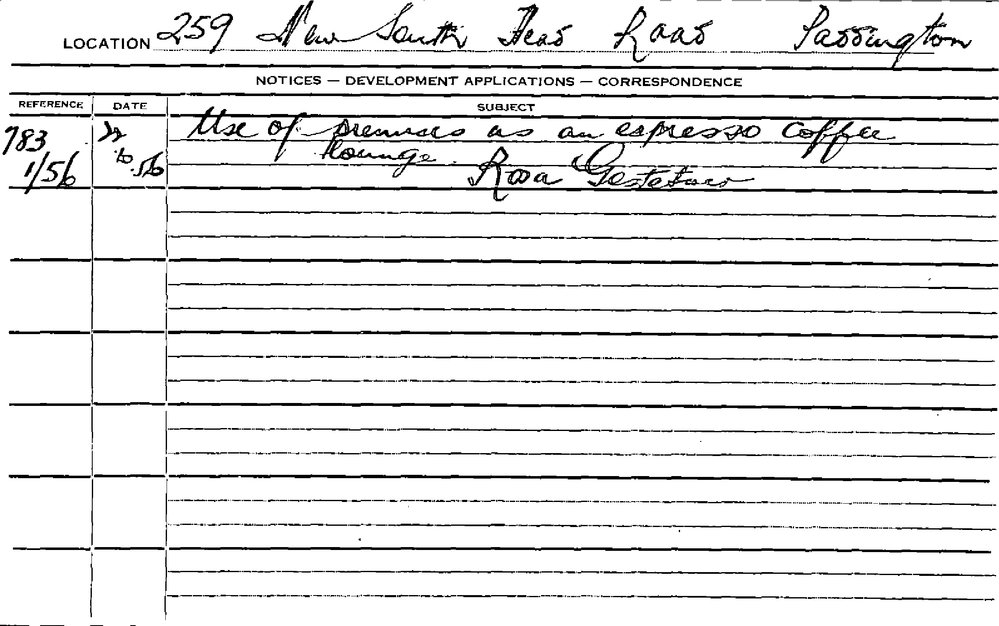 LOCATION 259 New South Head Road Paddington
NOTICES — DEVELOPMENT APPLICATIONS — CORRESPONDENCE
REFERENCE DATE SUBJECT
783 Use of premises as an espresso coffee
lounge.
1/56 Rosa